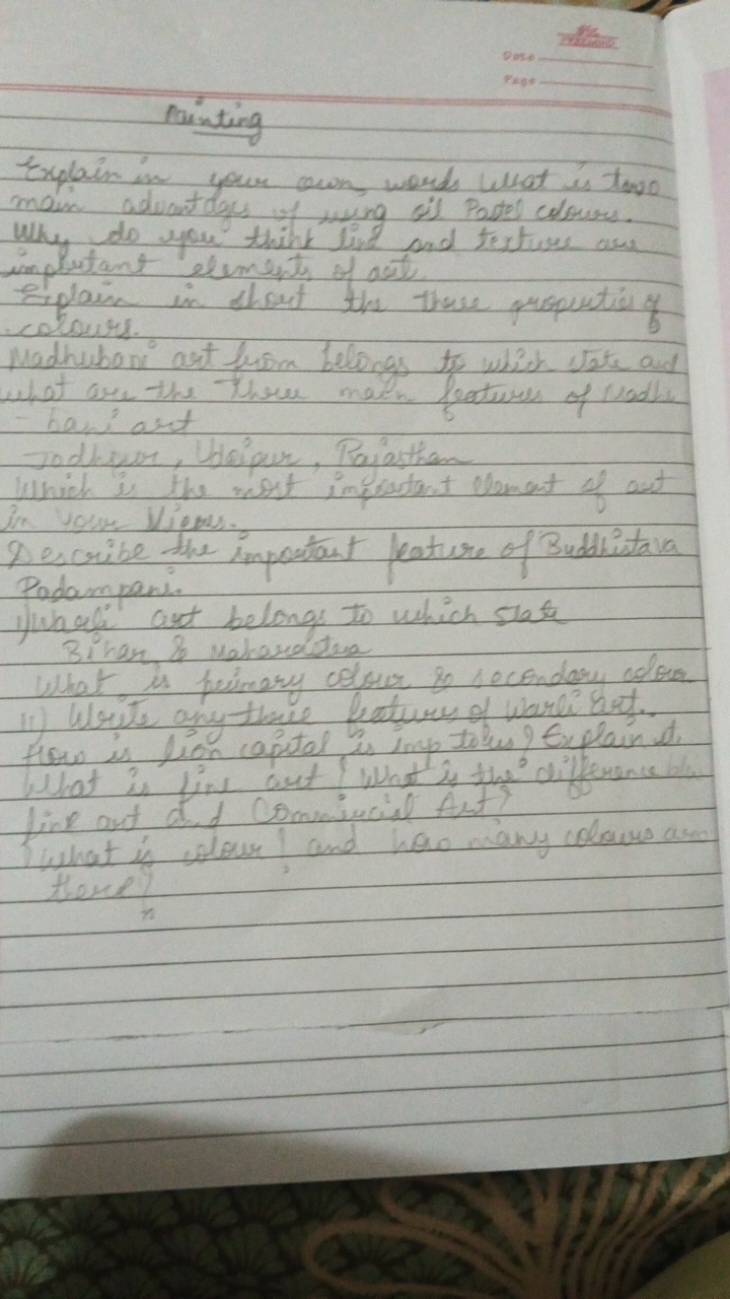 Date
Page
Painting
Explain in your own words what is two
main advantages of using oil Pastel colours.
Why do you think line and texture are
important elements of art.
Explain in short the three properties of
colours.
Madhubani art from belongs to which state and
what are the three main features of Madhu
- bani art
Jodhpur, Udaipur, Rajasthan
Which is the most important element of art
in your Views.
Describe the important feature of Buddhistava
Padampani.
art belongs to which state
Bihar & Maharastra
What is primary colour & secondary colour
11) Write any three features of Warli art.
How is lion capital is imp to us? Explain it.
What is fine art? What is the difference b/w
fine art and Commercial Art?
What is colour? and how many colours are
there?